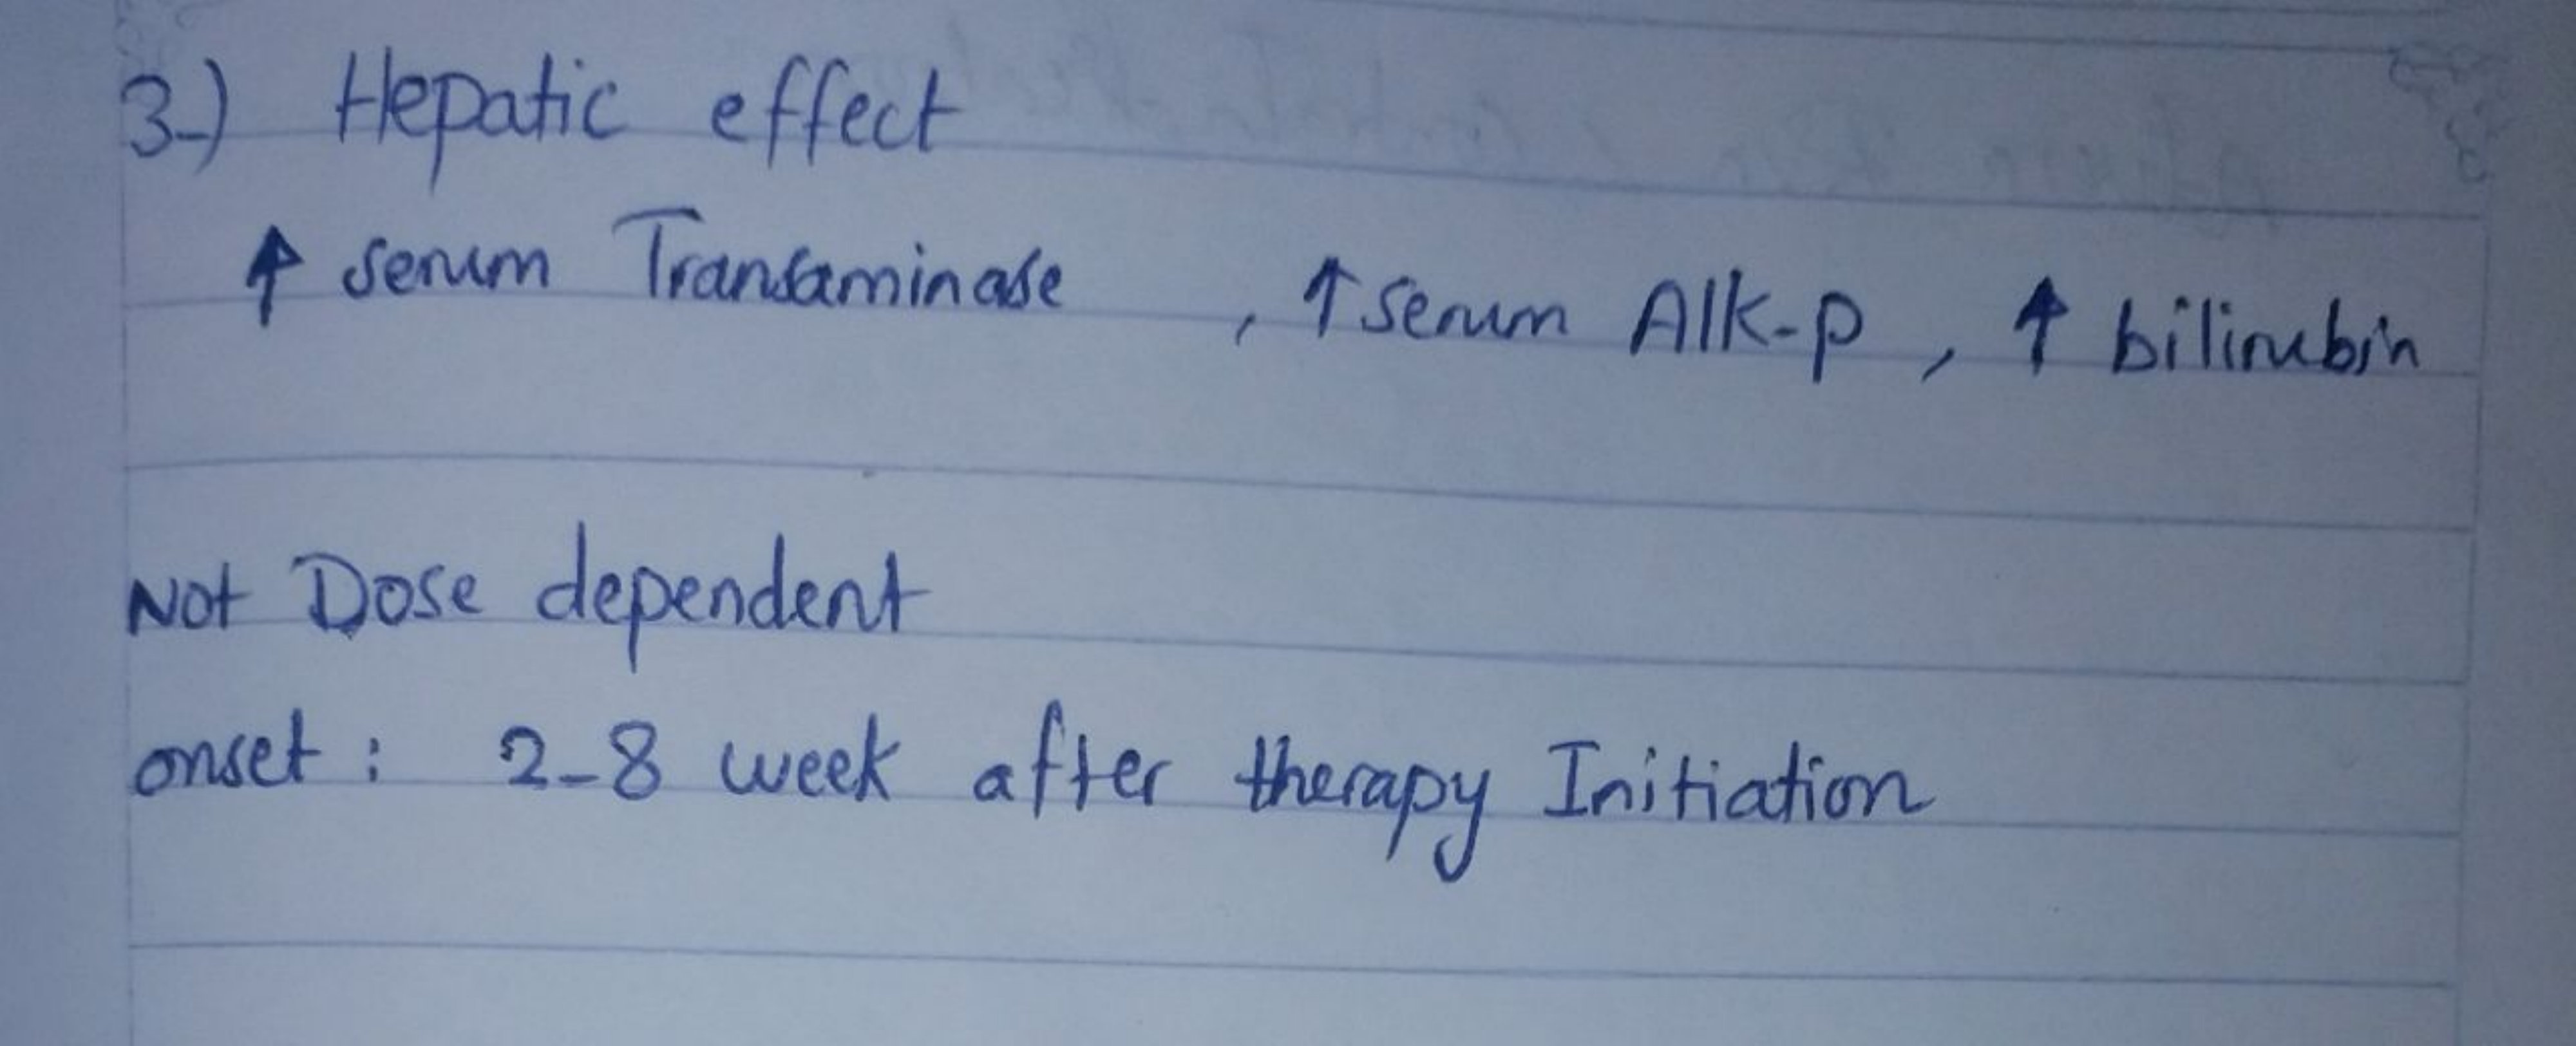 3-) Hepatic effect
↑ serum Transaminase , ↑ serum Alk-p , ↑ bilirubin
Not Dose dependent
onset : 2-8 week after therapy Initiation